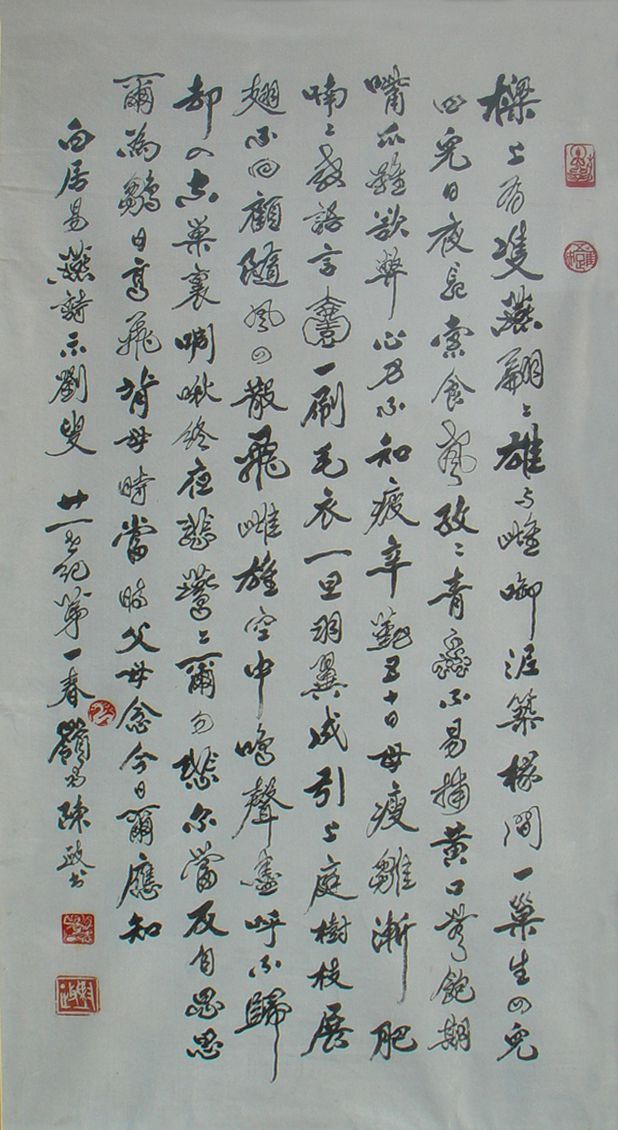 樑上有隻燕翩〻雄与雌啣泥築椽間一巢生四兒
四兒日夜長索食聲孜〻青蟲不易捕黄口無飽期
嘴爪雖欲弊心力不知疲辛勤十日母瘦雛漸肥
喃〻教語言一刷毛衣一旦羽翼成引上庭樹枝展
翅不回顧隨風四散飛雌雄空中鳴聲盡呼不歸
却入空巢裏啁啾終夜悲鷰〻爾勿悲尔當反自思思
爾為鶵日高飛背母時當時父母念今日爾應知
白居易燕詩示劉叟 廿一世纪第一春嶺南陳政书